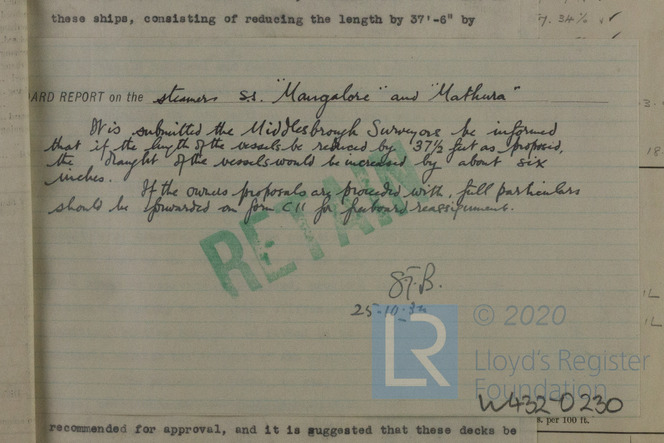 these ships, consisting of reducing the length by 37'-6" by
ARD REPORT on the steamers ss. "Mangalore" and "Mathura"
It is submitted the Middlesbrough Surveyors be informed
that if the length of the vessels be reduced by 37½ feet as proposed,
the draught of the vessels would be increased by about six
inches.
If the owners proposals are proceeded with, full particulars
should be forwarded on form C11 for freeboard reassignment.
RETAIN
25.10.34
LR
© 2020
Lloyd's Register
Foundation
W432-0230
s. per 100 ft.
recommended for approval, and it is suggested that these decks be